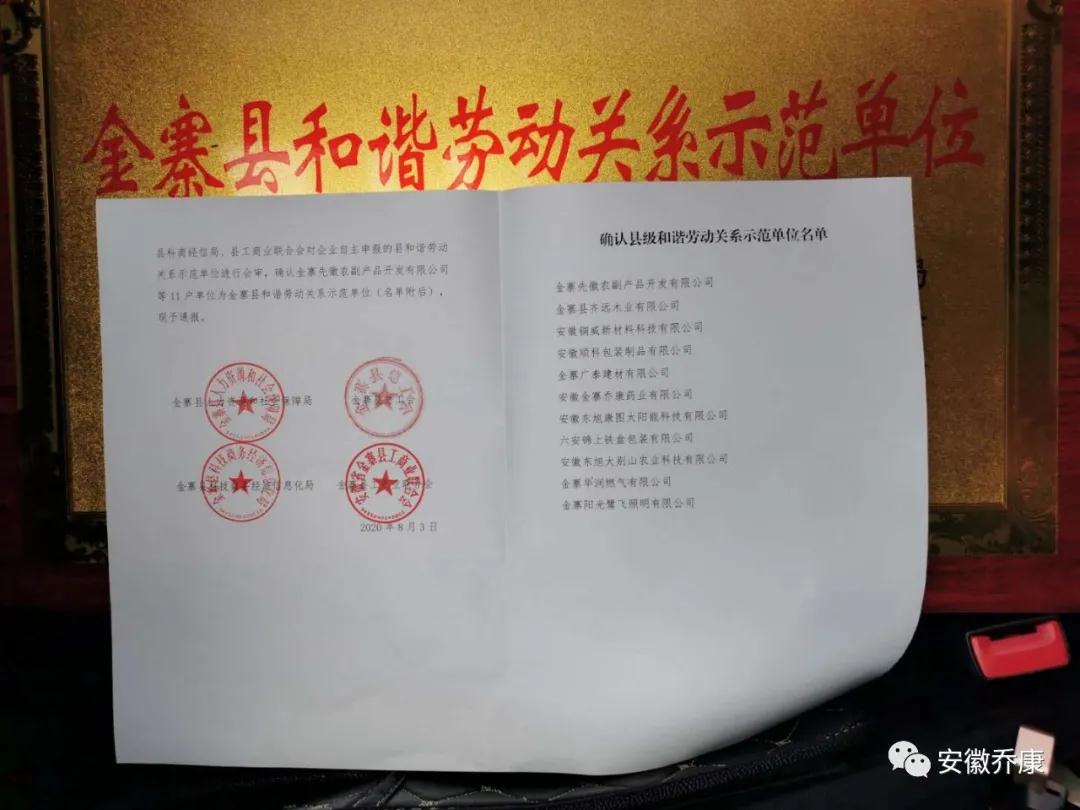 金寨县和谐劳动关系示范单位
县科商经信局、县工商业联合会对企业自主申报的县和谐劳动
关系示范单位进行会审，确认金寨先徽农副产品开发有限公司
等11户单位为金寨县和谐劳动关系示范单位（名单附后），
现予通报。
金寨县人力资源和社会保障局
金寨县总工会
金寨县科技商务经济信息化局
金寨县工商业联合会
2020年8月3日
确认县级和谐劳动关系示范单位名单
金寨先徽农副产品开发有限公司
金寨县齐远木业有限公司
安徽铜威新材料科技有限公司
安徽顺科包装制品有限公司
金寨广泰建材有限公司
安徽金寨乔康药业有限公司
安徽东旭康图太阳能科技有限公司
六安锦上铁盒包装有限公司
安徽东旭大别山农业科技有限公司
金寨华润燃气有限公司
金寨阳光鹭飞照明有限公司
安徽乔康